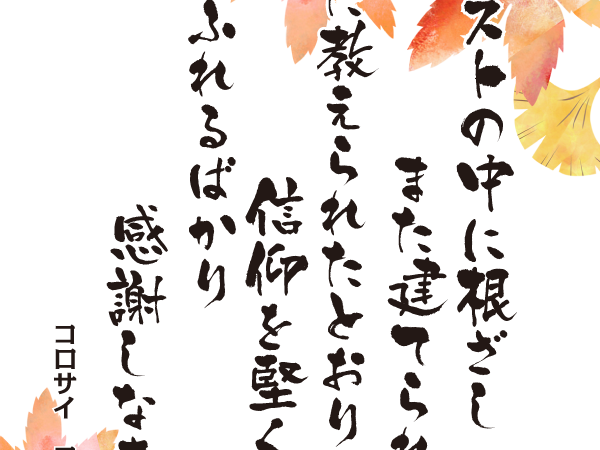 ストの中に根ざし
また建てられ
に教えられたとおり
信仰を堅く
ふれるばかり
感謝しな
コロサイ